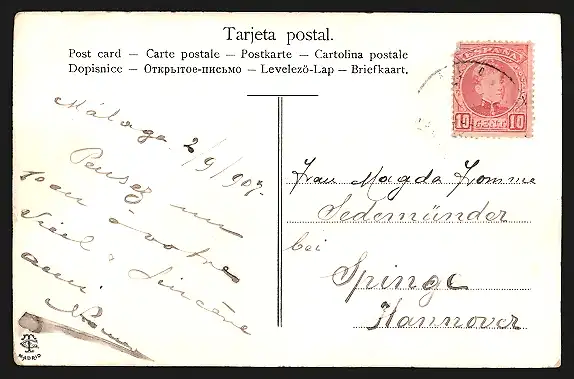 Tarjeta postal.
Post card — Carte postale — Postkarte — Cartolina postale
Dopisnice — Открытое-письмо — Levelező-Lap — Briefkaart.
ESPAÑA
10 CENT. 10
Málaga 2/9/907
Pensez un
à votre
& Sincère
ami.
Frau Magda Fromme
Sedemünder
bei
Springe
Hannover
MADRID